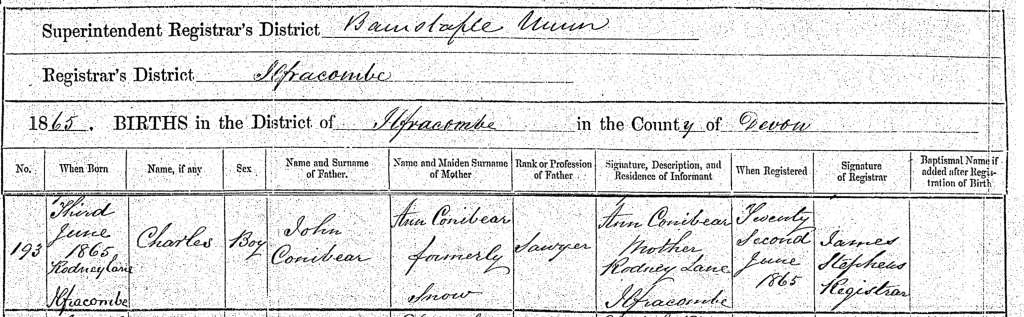 Superintendent Registrar's District Barnstaple Union
Registrar's District Ilfracombe
1865. BIRTHS in the District of Ilfracombe in the County of Devon
No.
When Born
Name, if any
Sex
Name and Surname
of Father.
Name and Maiden Surname
of Mother
Rank or Profession
of Father
Signature, Description, and
Residence of Informant
When Registered
Signature
of Registrar
Baptismal Name if
added after Regis-
tration of Birth
193
Third
June
1865
Rodney Lane
Ilfracombe
Charles
Boy
John
Conibear
Ann Conibear
formerly
Snow
Sawyer
Ann Conibear
Mother
Rodney Lane
Ilfracombe
Twenty
Second
June
1865
James
Stephens
Registrar